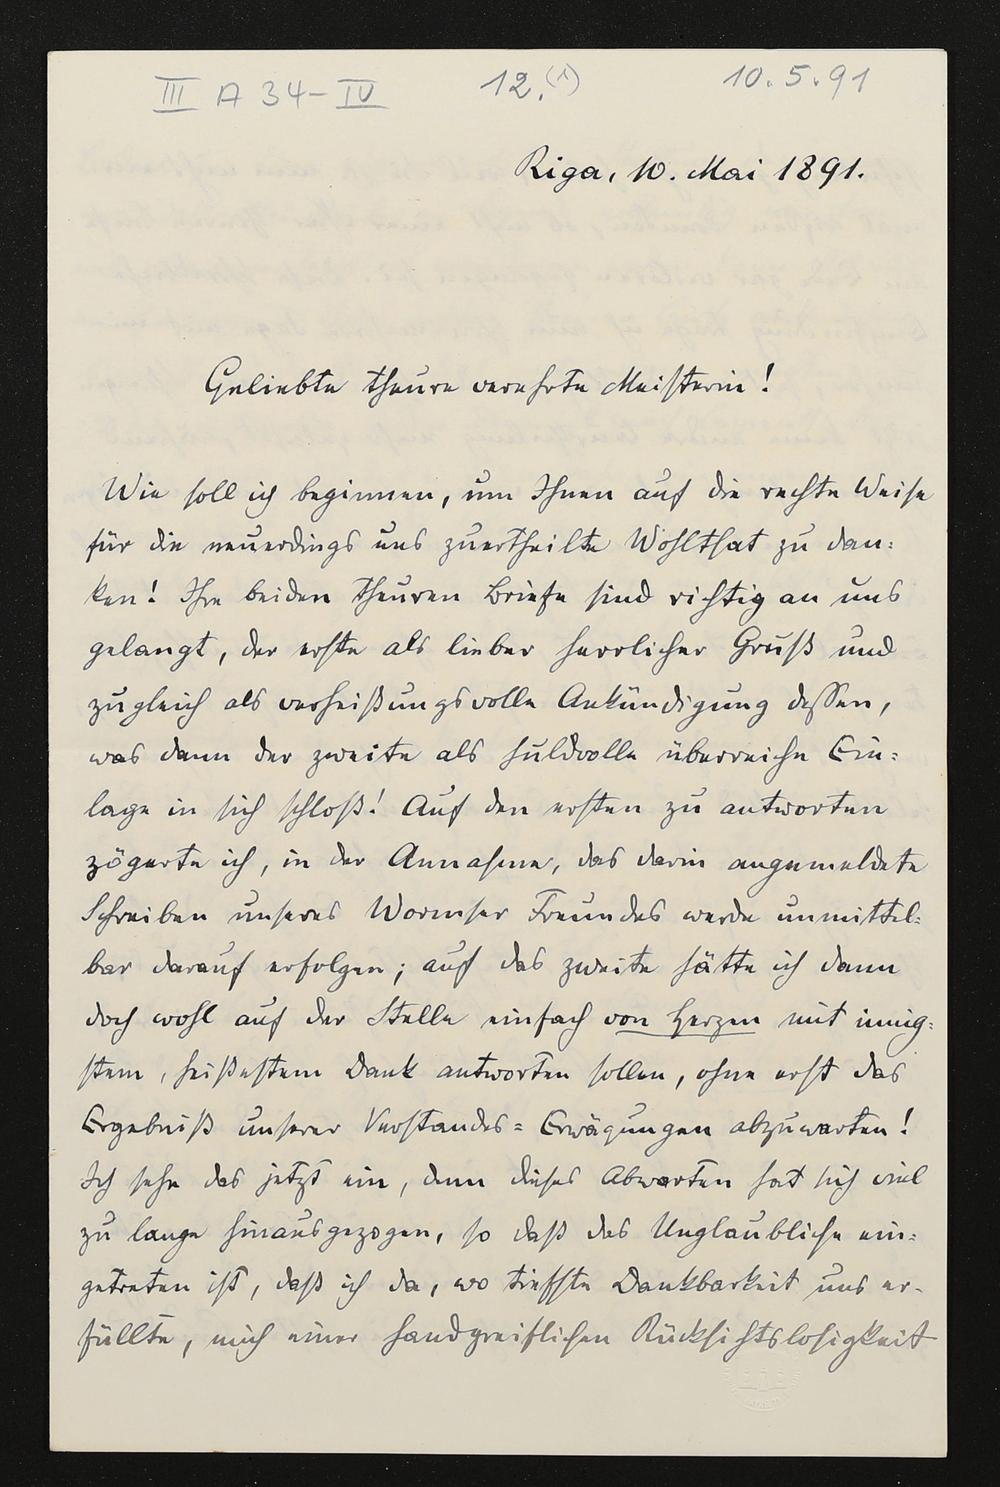 III A 34-IV 12.(1) 10.5.91
Riga, 10. Mai 1891.
Geliebte theure verehrte Meisterin!
Wie soll ich beginnen, um Ihnen auf die rechte Weise
für die neuerdings uns zuertheilte Wohlthat zu dan=
ken! Ihre beiden theuren Briefe sind richtig an uns
gelangt, der erste als lieber herrlicher Gruß und
zugleich als verheißungsvolle Ankündigung dessen,
was dann der zweite als huldvolle überreiche Ein=
lage in sich schloß! Auf den ersten zu antworten
zögerte ich, in der Annahme, das darin angemeldete
Schreiben unseres Wormser Freundes werde unmittel=
bar darauf erfolgen; auf das zweite hätte ich dann
doch wohl auf der Stelle einfach von Herzen mit innig=
stem, heißestem Dank antworten sollen, ohne erst das
Ergebniß unserer Verstandes=Erwägungen abzuwarten!
Ich sehe das jetzt ein, denn dieses Abwarten hat sich viel
zu lange hinausgezogen, so daß das Unglaubliche ein=
getreten ist, daß ich da, wo tiefste Dankbarkeit uns er-
füllte, mich einer handgreiflichen Rücksichtslosigkeit